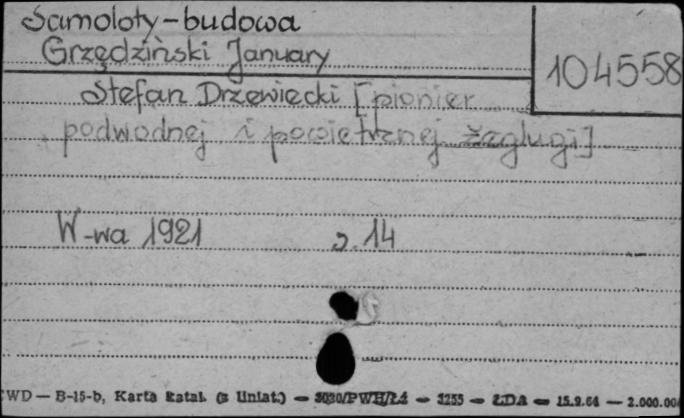 Samoloty-budowa
Grzędziński January
104558
Stefan Drzewiecki [pionier
podwodnej i powietrznej żeglugi]
W-wa 1921 s. 14
CWD — B-15-b, Karta katal. (z Uniat.) — 3030/PWH/Ł4 — 3255 — ŁDA — 15.9.64 — 2.000.00